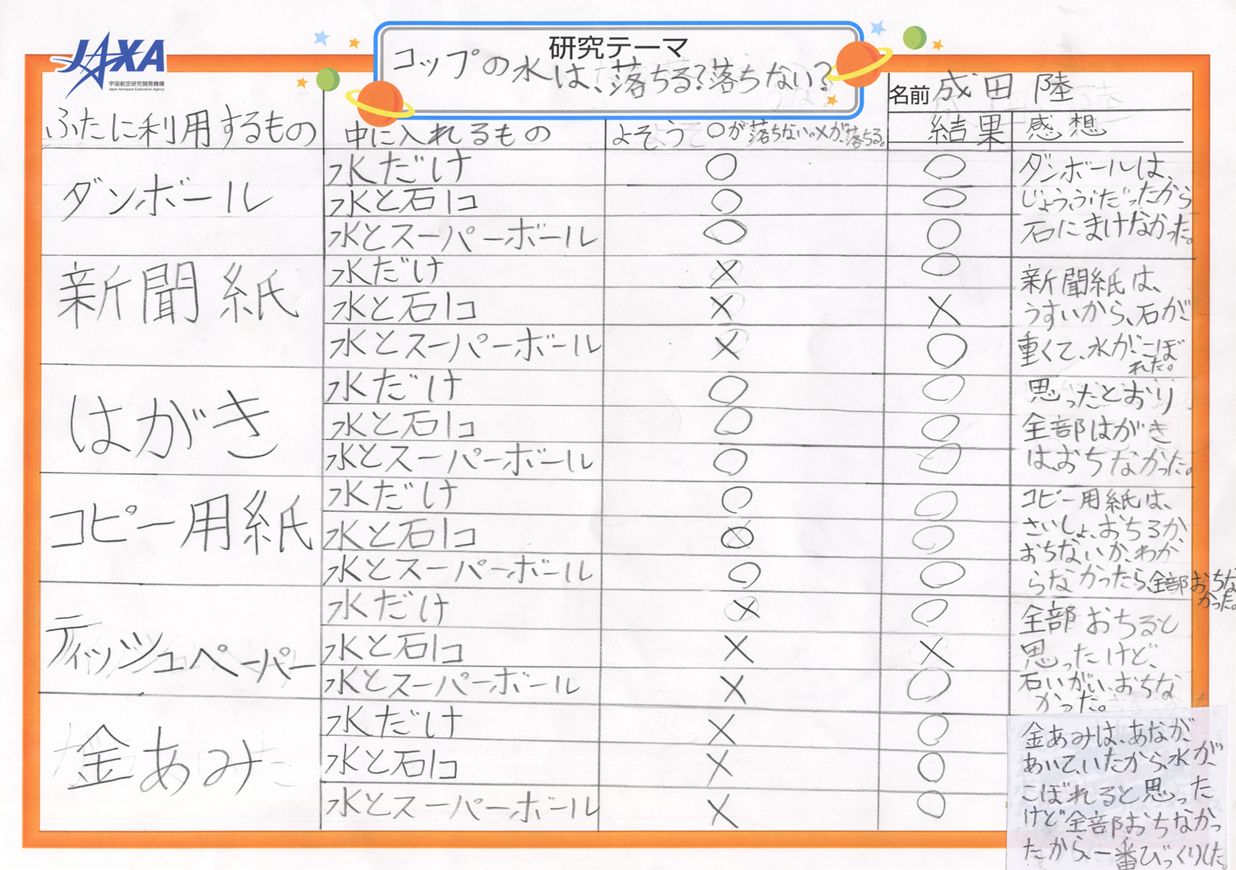 JAXA
宇宙航空研究開発機構
Japan Aerospace Exploration Agency
研究テーマ
コップの水は、落ちる?落ちない?
名前 成田 陸
ふたに利用するもの 中に入れるもの よそう ○が落ちない。×が、落ちる。 結果 感想
ダンボール
水だけ ○ ○
水と石1コ ○ ○
水とスーパーボール ○ ○
ダンボールは、
じょうぶだったから
石にまけなかった。
新聞紙
水だけ × ○
水と石1コ × ×
水とスーパーボール × ○
新聞紙は、
うすいから、石が
重くて、水がこぼ
れた。
はがき
水だけ ○ ○
水と石1コ ○ ○
水とスーパーボール ○ ○
思ったとおり
全部はがき
はおちなかった。
コピー用紙
水だけ ○ ○
水と石1コ ○
水とスーパーボール ○ ○
コピー用紙は、
さいしょ、おちるか、
おちないか、わか
らなかったら、全部おちな
かった。
ティッシュペーパー
水だけ × ○
水と石1コ × ×
水とスーパーボール × ○
全部おちると
思ったけど、
石いがい、おちな
かった。
金あみ
水だけ × ○
水と石1コ × ○
水とスーパーボール × ○
金あみは、あなが、
あいて、いたから、水が、
こぼれると思った
けど全部おちなかっ
たから、一番びっくりした。